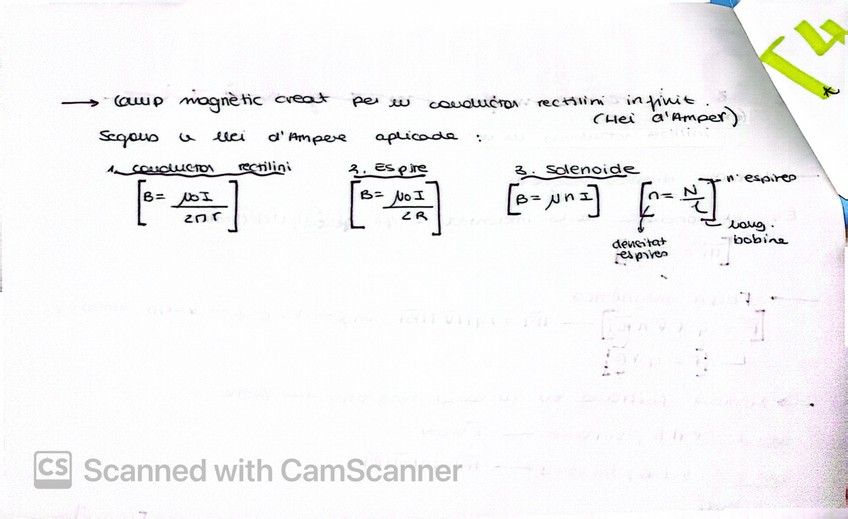 T4
*
→ Camp magnètic creat per un conductor rectilini infinit.
(Llei d'Amper)
Segons la llei d'Ampere aplicada :
1. conductor rectilini 2. Espira 3. Solenoide
[B = μ0 I / 2πr] [B = μ0 I / 2R] [B = μ n I] [n = N / L]
nº espires
long.
bobina
densitat
espires
CS Scanned with CamScanner